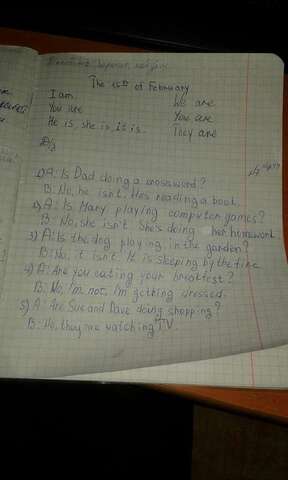 The 15th of February
I am We are
You are You are
He is, she is, it is They are
1) A: Is Dad doing a crossword?
B: No, he isn't. He's reading a book.
2) A: Is Mary playing computer games?
B: No, she isn't. She's doing her homework
3) A: Is the dog playing in the garden?
B: No, it isn't. It is sleeping by the fire
4) A: Are you eating your breakfast?
B: No, I'm not. I'm getting dressed.
5) A: Are Sue and Dave doing shopping?
B: No, they're watching TV.